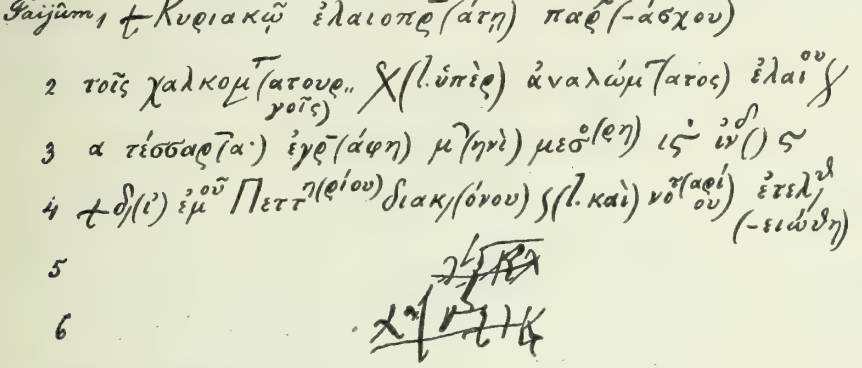 Faijûm, ⳨ Κυριακῷ ἐλαιοπρ(άτῃ) παρ(-άσχου)
2 τοῖς χαλκομ(ατουργοῖς) (l. ὑπὲρ) ἀναλώμ(ατος) ἐλαιου
3 α τέσσαρ(α·) ἐγρ(άφη) μ(ηνὶ) μεσο(ρη) ις ἰνδ() ς
4 ⳨ δ(ι') ἐμοῦ Πεττη(ρίου) διακ(όνου) ς (l. καὶ) νοτ(αρίου) ἐτελ(-ειώθη)
5
6